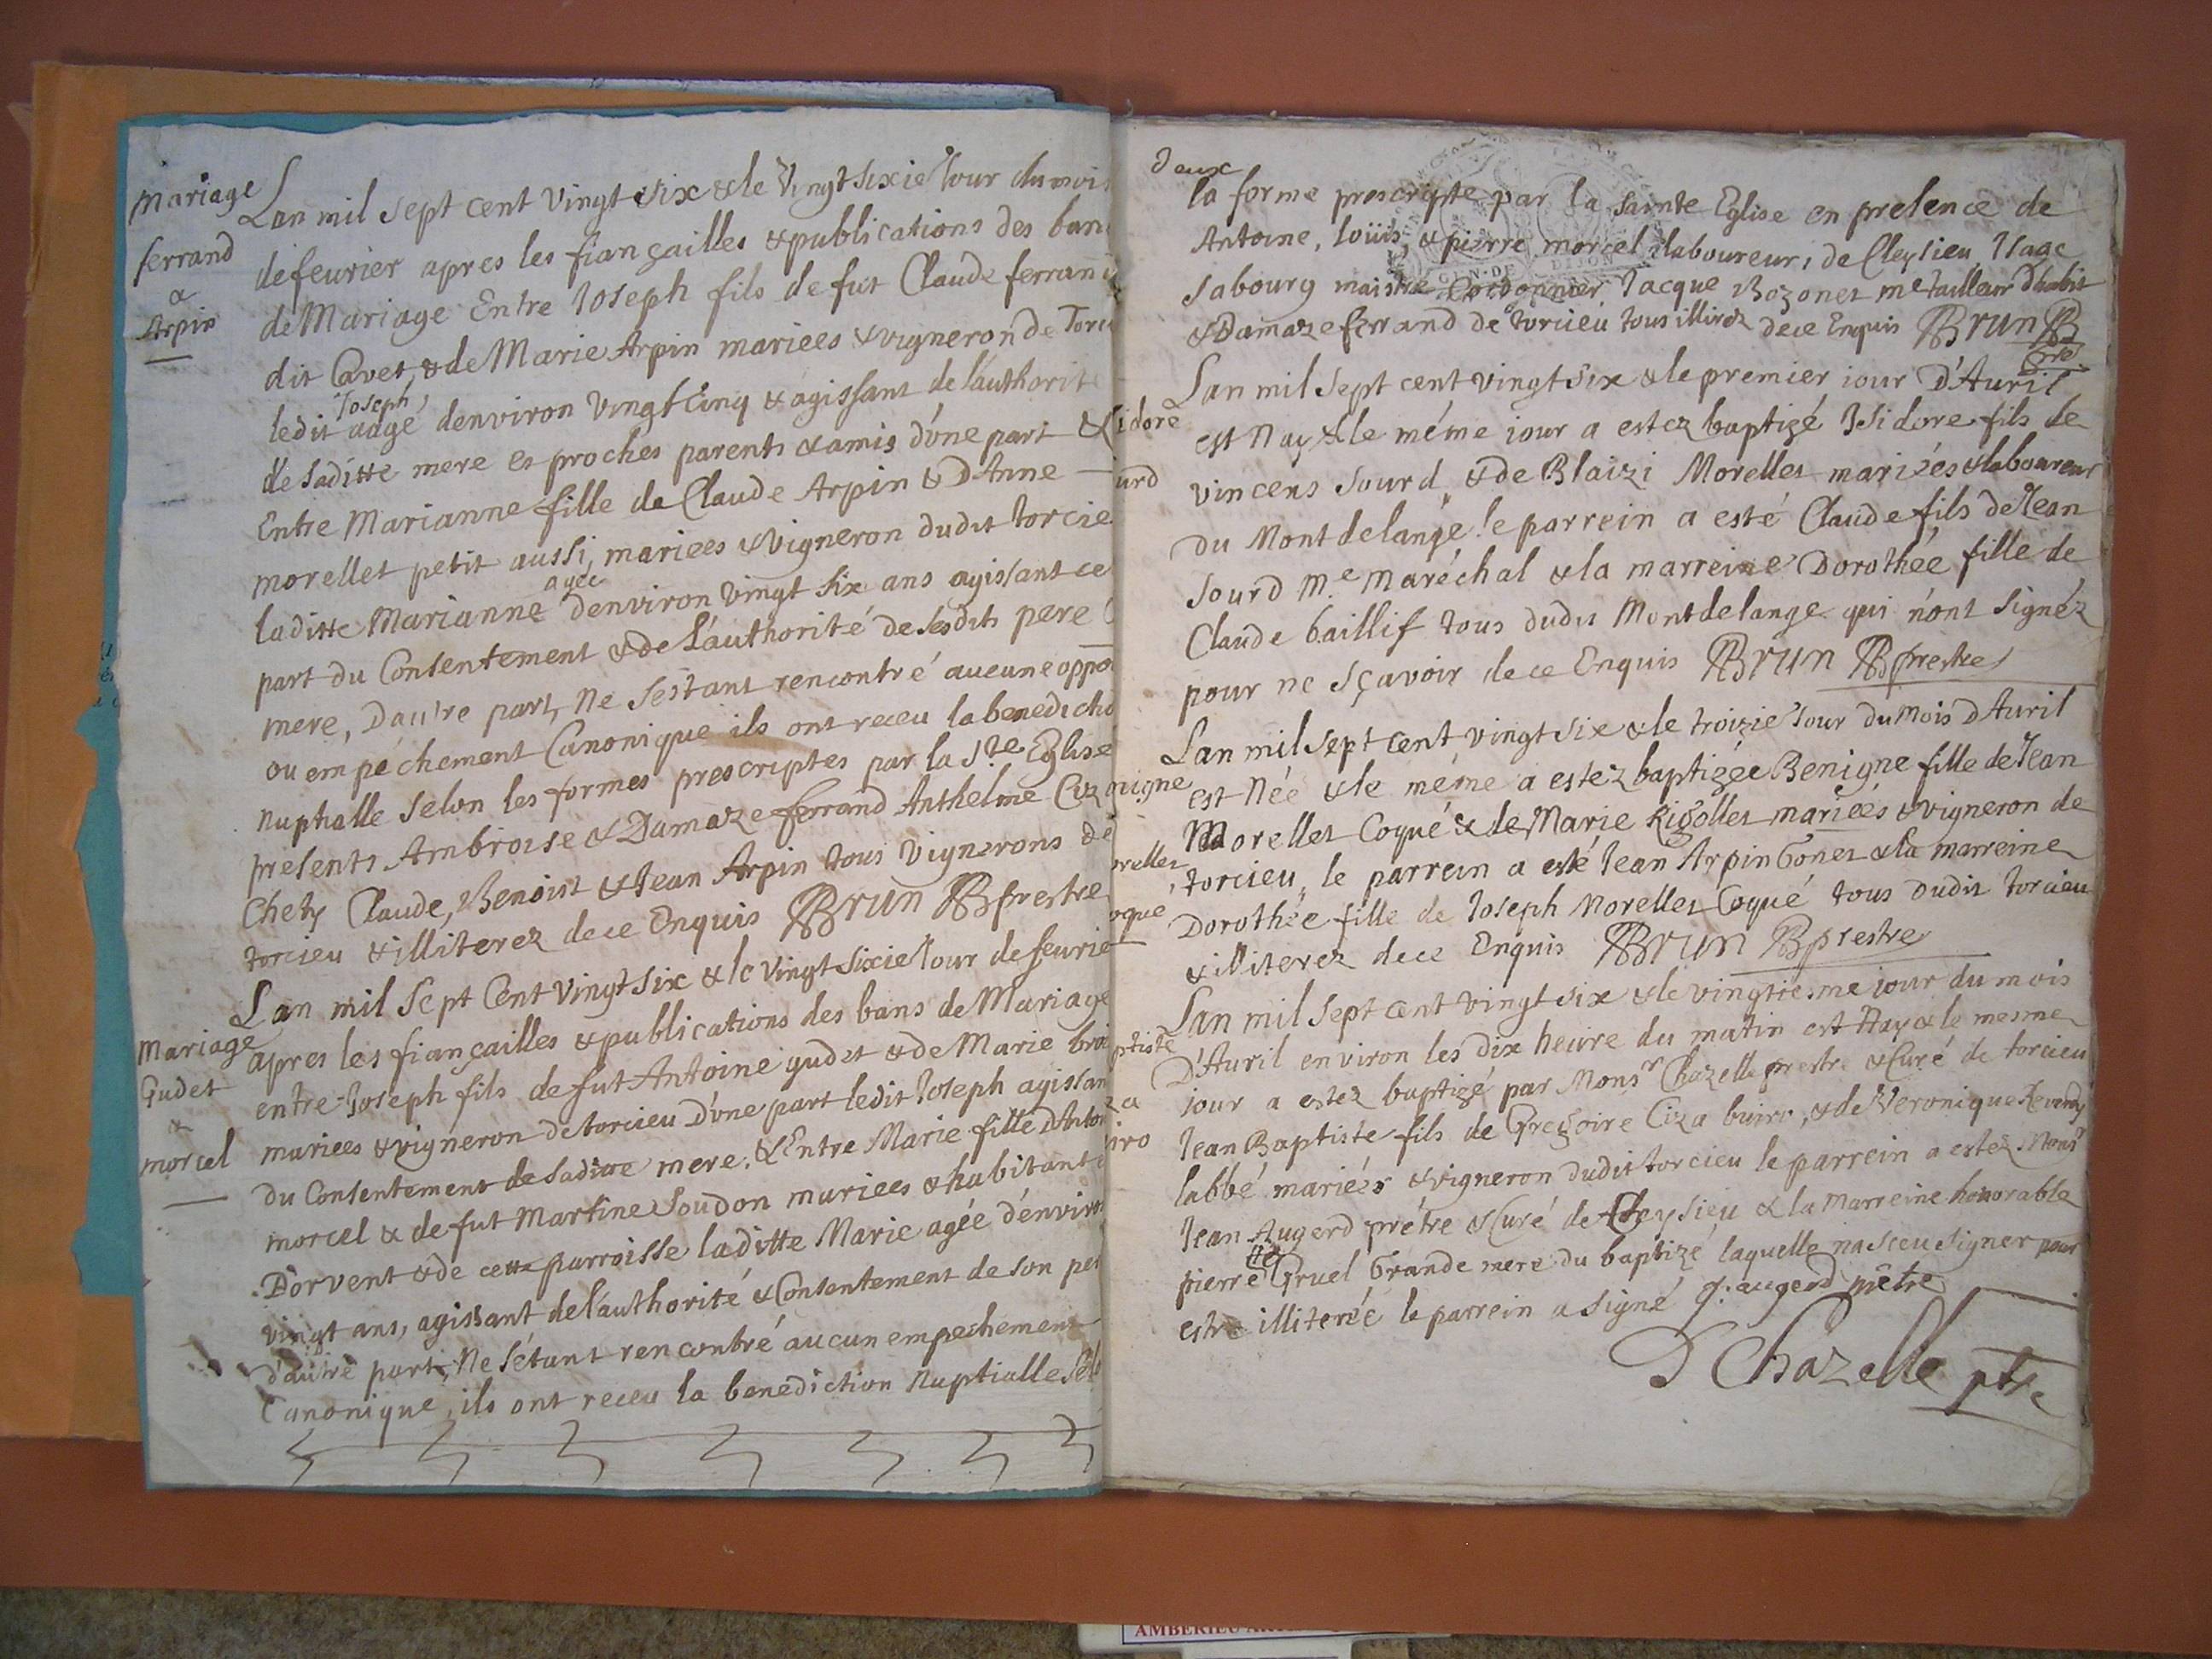 Mariage
ferrand
&
Arpin
Lan mil sept cent vingt six & le vingt sixie Jour du mois
de feurier apres les fiançailles & publications des ban
de Mariage Entre Joseph fils de fut Claude ferrand
dit Cavet, & de Marie Arpin mariees & vigneron de Torci
ledit Joseph aagé denviron vingt Cinq & agissant de l'authorité
de saditte mere es proches parents & amis d'une part &
Entre Marianne fille de Claude Arpin & D'Anne
morellet petit aussi, mariees & vigneron dudit torcie
laditte Marianne agée denviron vingt six ans agissant ce
part du Consentement & de L'authorité de sesdits pere
mere, Dautre part, Ne sestant rencontré aucune oppo
ou empéchement Canonique ils ont receu la benedictio
nuptialle selon les formes prescriptes par la Ste Eglise
presents Ambroise & Damaze ferrand Anthelme Ciz
Chety Claude, Benoist & Jean Arpin tous vignerons de
torcieu & illiterez de ce Enquis Brun prestre
Mariage
Gudet
&
morcel
Lan mil Sept Cent vingt six & le vingt sixie Jour de feurie
apres les fiançailles & publications des bans de Mariage
entre Joseph fils de fut Antoine gudet & de Marie bro
mariees & vigneron de torcieu D'une part ledit Joseph agissan
du Consentement de saditte mere, & Entre Marie fille D'Anto
morcel & de fut Martine Soudon mariees & habitants
D'orvent & de cette parroisse laditte Marie agée d'environ
vingt ans, agissant de l'authorité & Consentement de son per
d'autre part, Ne s'étant rencontré aucun empeschement
Canonique, ils ont receu la benediction Nuptialle Sel
Deux
la forme prescripte par la sainte Eglise en presence de
Antoine, loüis, & pierre morcel laboureur, de Cleysieu, Isaac
Sabourg maistre Cordonnier Jacque Bozonet me tailleur D'habit
& Damaze ferrand de torcieu tous illirez de ce Enquis Brun
pre
Lan mil sept cent vingt six & le premier iour D'Auril
est Nay & le méme iour a estez baptizé Isidore fils de
vincens Sourd, & de Blaizi Morellet mariées & laboureur
du Montdelange. le parrein a esté Claude fils de Jean
Sourd Me Maréchal & la marreine Dorothée fille de
Claude baillif tous dudit Montdelange qui n'ont signéz
pour ne sçavoir de ce Enquis Brun prestre
idore
urd
Lan mil sept cent vingt six & le troizie Jour du Mois D'Auril
est Née & le méme a estez baptizée Benigne fille de Jean
Morellet Coqué & de Marie Rigollet mariées & vigneron de
torcieu, le parrein a esté Jean Arpin Gonet & la marreine
Dorothée fille de Joseph Morellet Coqué tous dudit torcieu
& illiterez de ce Enquis Brun prestre
nigne
orellet
oque
Lan mil sept cent vingt six & le vingtiesme iour du mois
D'Auril environ les dix heure du matin est Nay & le mesme
iour a estez baptizé par Monsr Chazelle prestre & Curé de torcieu
Jean Baptiste fils de Gregoire Ciza buiro, & de Veronique
labbé mariées & vigneron dudit torcieu le parrein a estez Monsr
Jean Augerd prétre & Curé de Cleysieu & la Marreine honorable
pierrette Gruel Grande mere du baptizé laquelle na sceu signer pour
estre illiterée le parrein a signé J. augerd prêtre
ptiste
za
iro
D Chazelle ptre
AMBERIEU